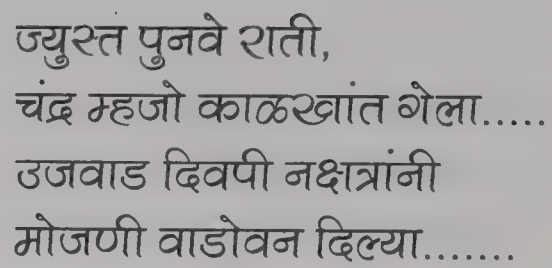 ज्युस्त पुनवे राती,
चंद्र म्हजो काळखांत गेला.....
उजवाड दिवपी नक्षत्रांनी
मोजणी वाडोवन दिल्या.......